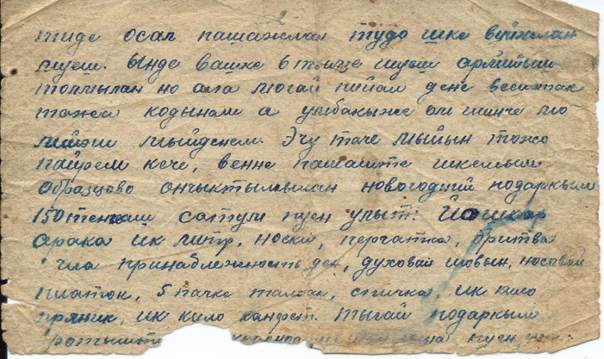 тиде осал пашажлан тудо шке вуйжлан
пуэш. Ынде вашке 6 тылзе шуэш армийыш
толмылан но ала могай пиал дене
кодынам а умбакыже ом шинче мо
лийеш мыйденем. Эчу таче мыйын тоже
пайрем кече, венне пашаште шкемым
образцово ончыктымылан новогодний подаркым
150 теҥгаш сатум пуен улыт: Йошкар
арака ик литр, носки, перчатка, бритва
принадлежность ден, духовай шовын, носовой
платок, 5 пачке тамак, спичка, ик кило
пряник, ик кило канфет. Тыгай подаркым